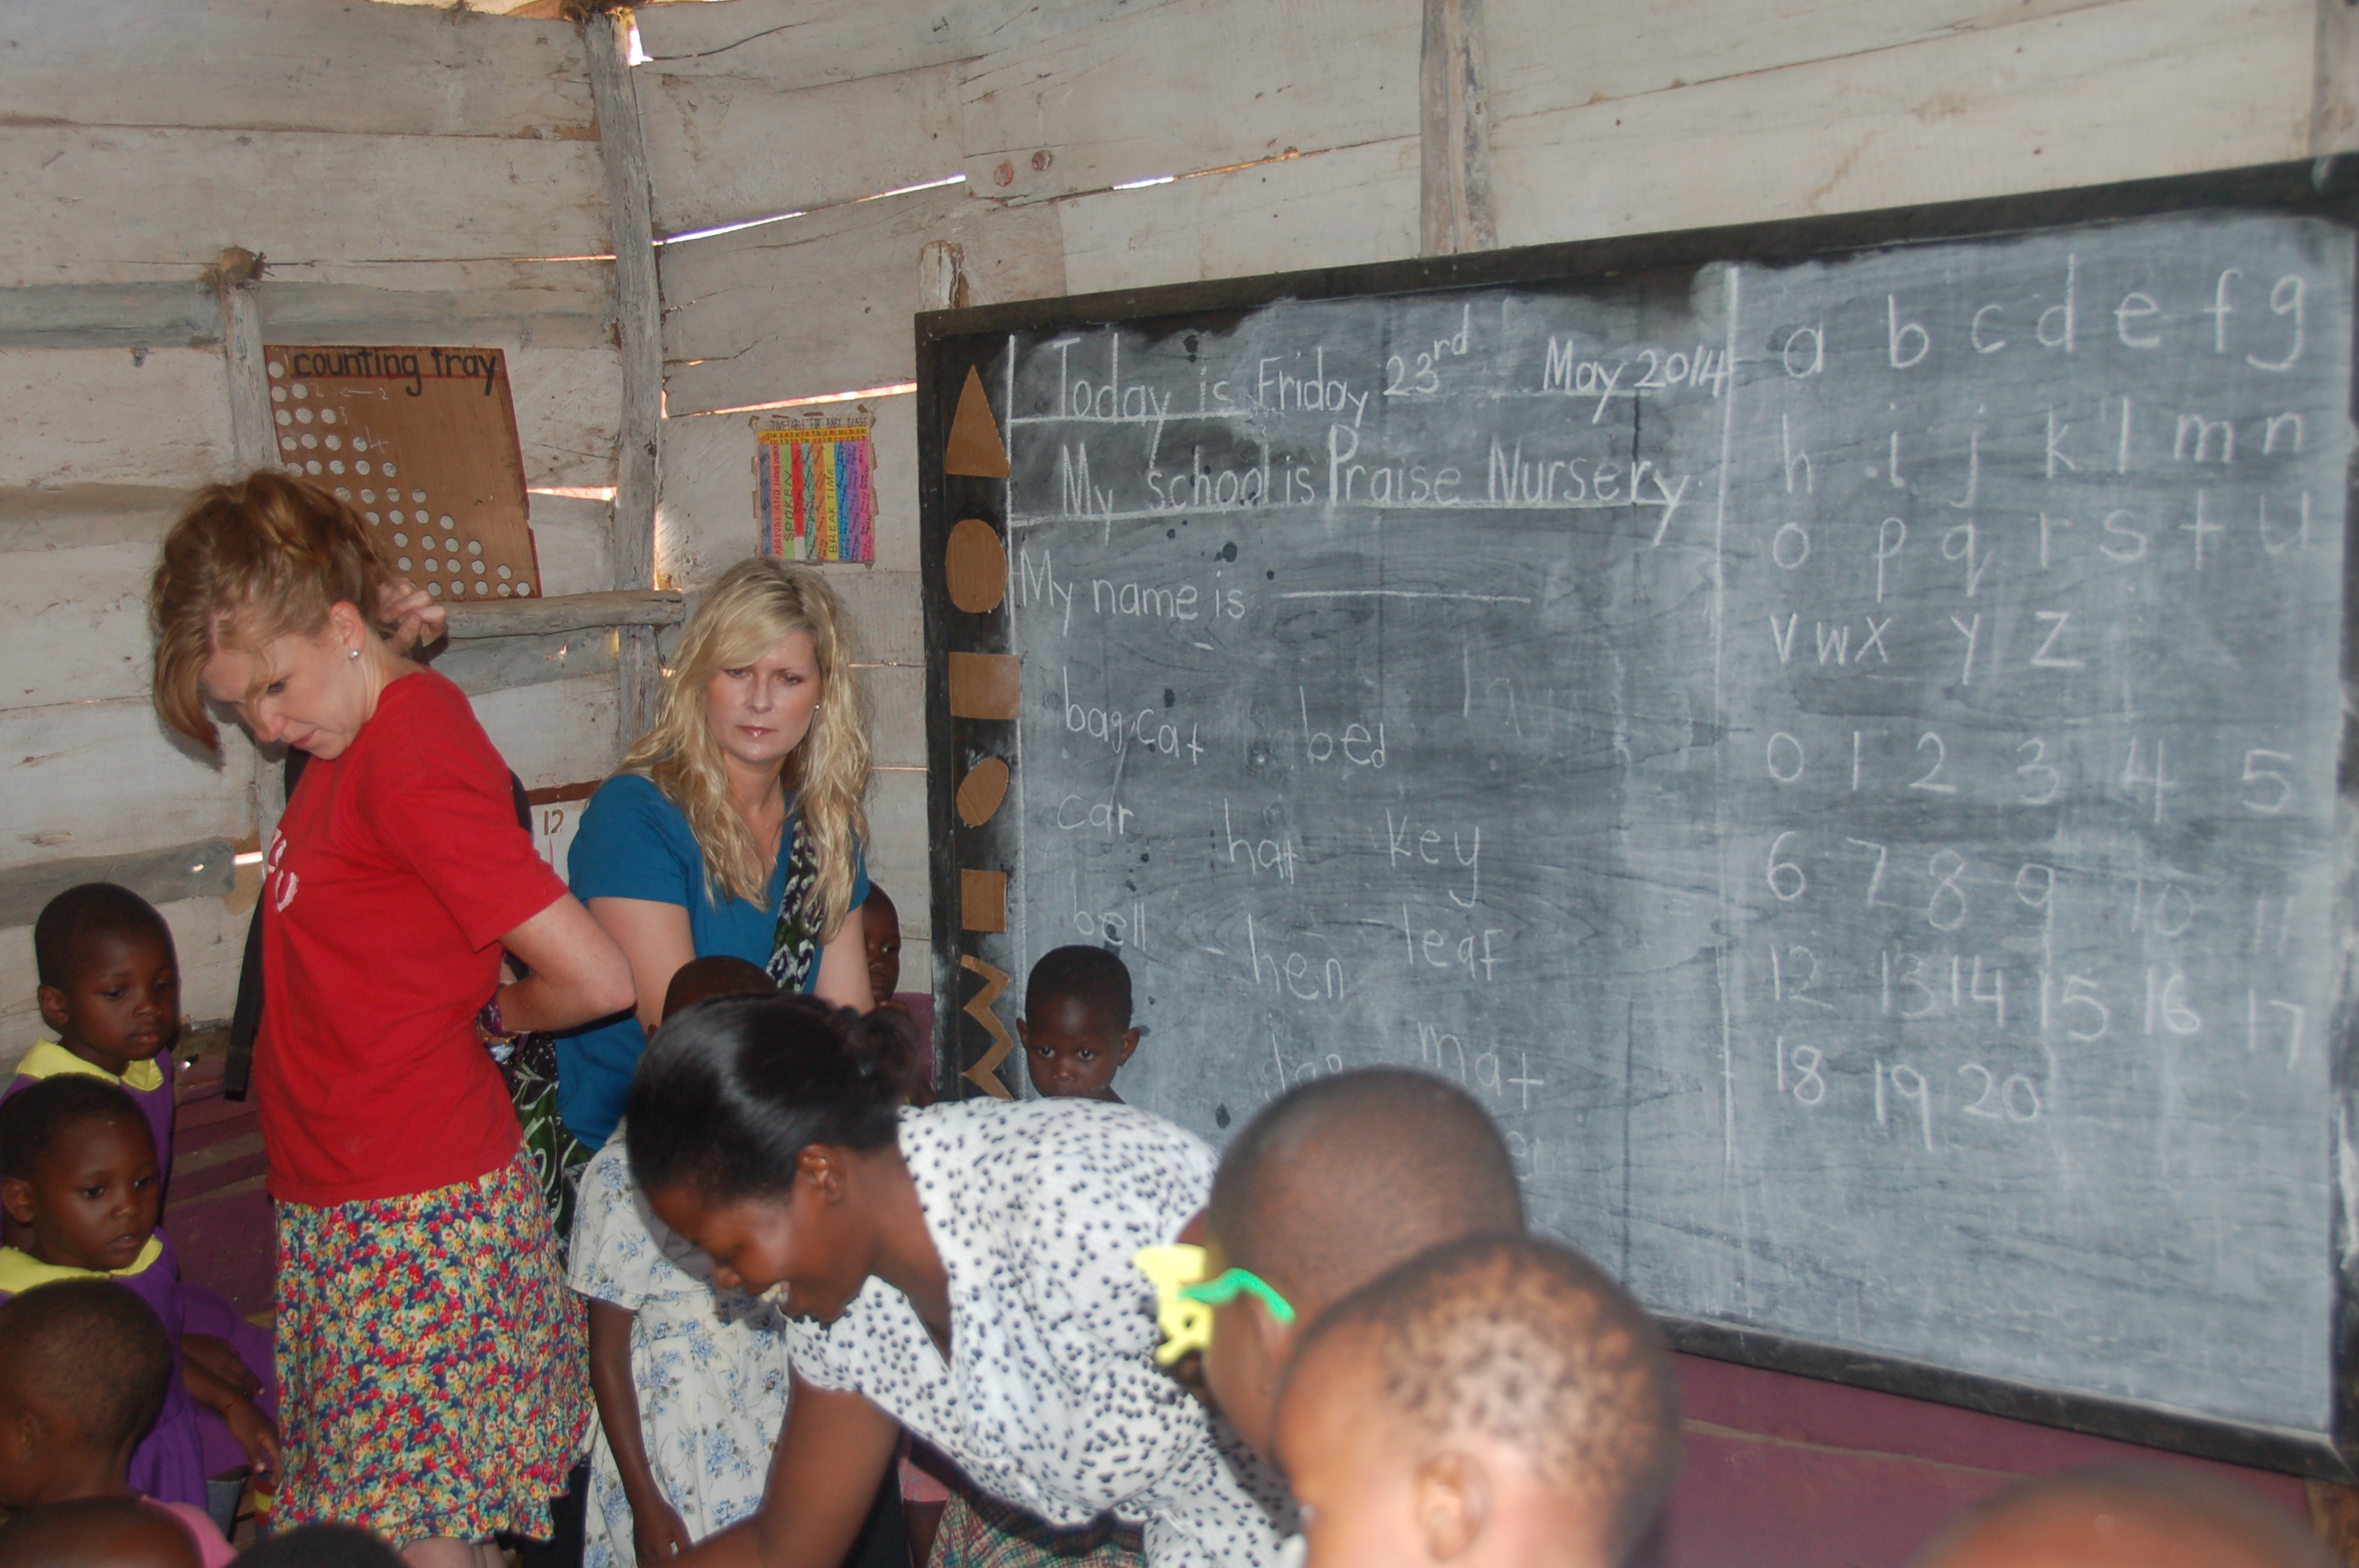 counting tray
2 ← 2
3
4
TIMETABLE FOR BABY CLASS
SPOKEN
BREAK TIME
12
Today is Friday 23rd May 2014
My school is Praise Nursery
My name is
bag cat bed
car hat key
bell hen leaf
mat
a b c d e f g
h i j k l m n
o p q r s t u
v w x y z
0 1 2 3 4 5
6 7 8 9 10 11
12 13 14 15 16 17
18 19 20